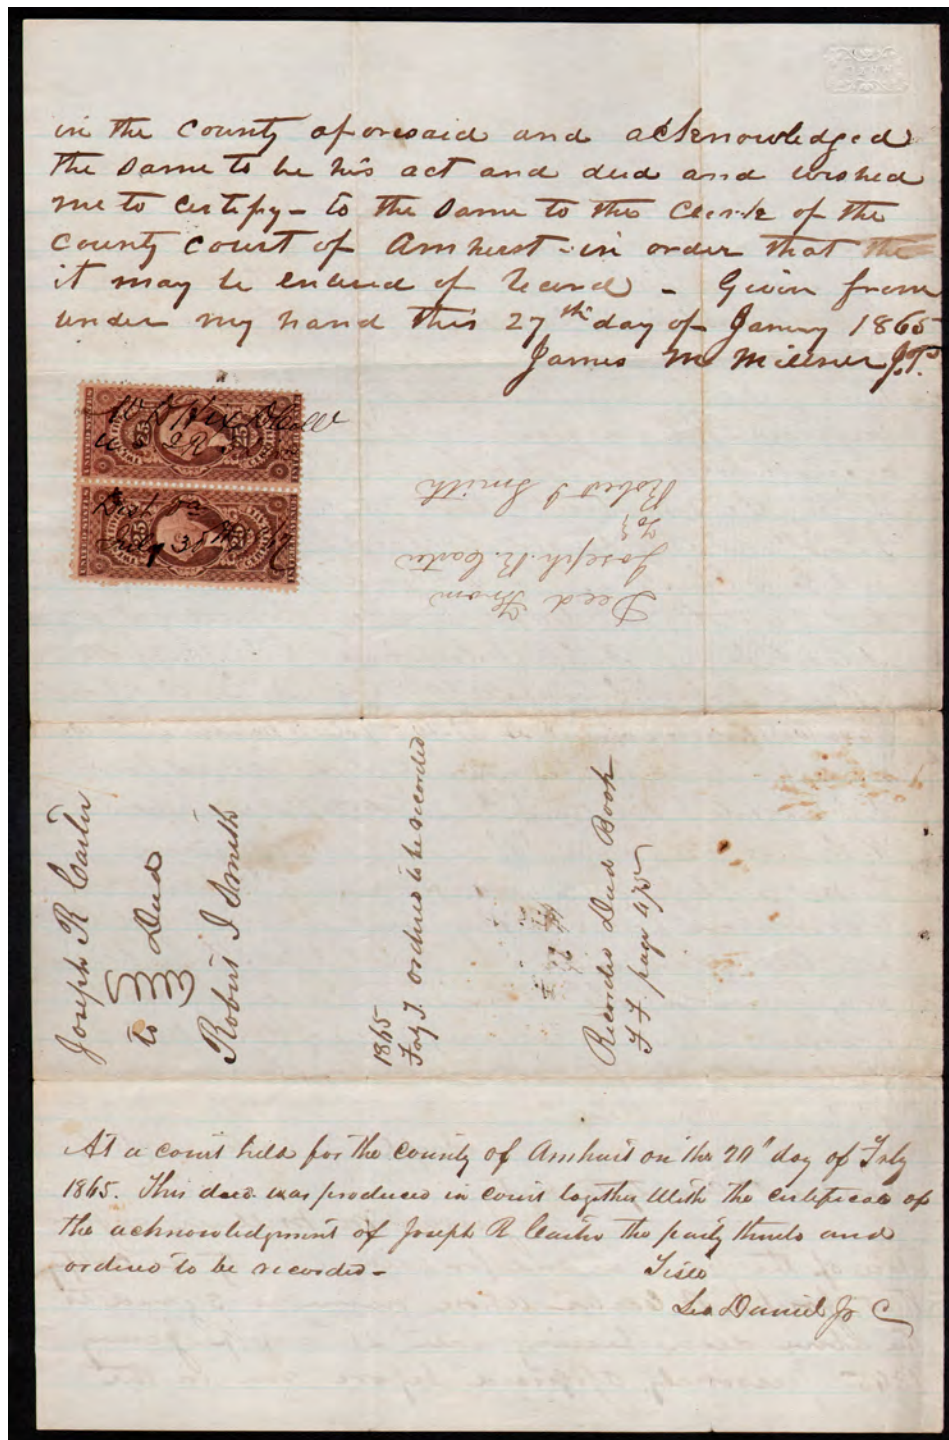 in the County aforesaid and acknowledged
the Same to be his act and deed and wished
me to certify - to the Same to the Clerk of the
County Court of Amherst - in order that the
it may be entered of Record - Given from
under my hand this 27th day of Janury 1865
James M Millner J.P.
W D Hix
25 25
Dist Va
July 31
25 25
Deed From
Joseph R. Carter
To
Robert J Smith
Joseph R Carter
to Deed
Robert J Smith
1865
Feby T. ordered to be recorded
Recorded Deed Book
F F. page 475
At a court held for the county of Amherst on the 20" day of Feby
1865. This deed was produced in court together With the certificate of
the acknowledgment of Joseph R Carter the party thereto and
ordered to be recorded -
Teste
Daniel Jr C